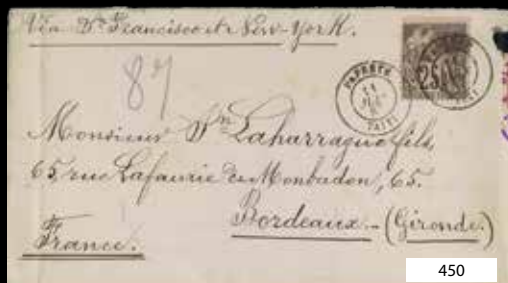 Via Sn Francisco et New-York.
87
25
PAPEETE
11
TAITI
Monsieur Sn Laharrague fils,
65, rue Lafaurie de Monbadon, 65.
Bordeaux.- (Gironde.)
France.
450